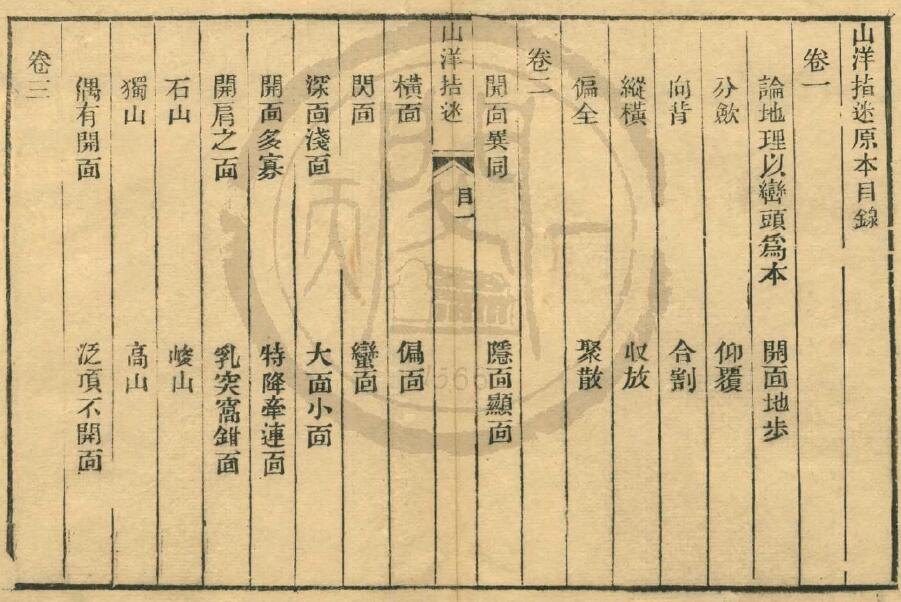 山洋指迷原本目錄
卷一
論地理以巒頭爲本 開面地步
分斂 仰覆
向背 合割
縱橫 収放
偏全 聚散
卷二
開面異同 隱面顯面
山洋指迷 目一
橫面 偏面
閃面 蠻面
深面淺面 大面小面
開面多寡 特降牽連面
開肩之面 乳突窩鉗面
石山 峻山
獨山 高山
偶有開面 泛項不開面
卷三